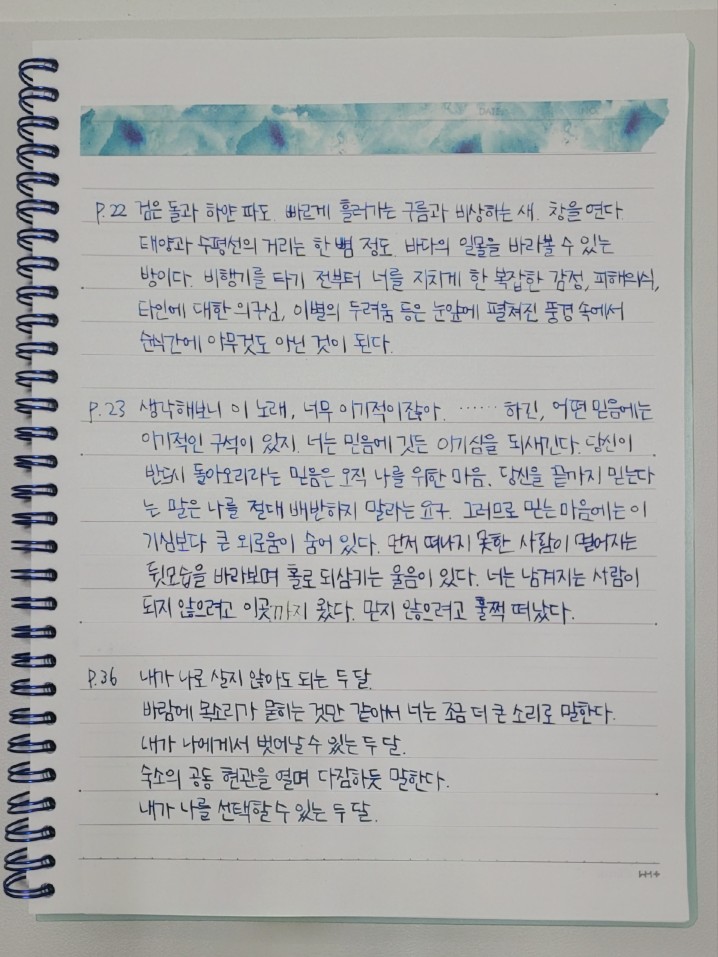 P.22 검은 돌과 하얀 파도. 빠르게 흘러가는 구름과 비상하는 새. 창을 연다.
태양과 수평선의 거리는 한 뼘 정도. 바다의 일몰을 바라볼 수 있는
방이다. 비행기를 타기 전부터 너를 지치게 한 복잡한 감정, 피해의식,
타인에 대한 의구심, 이별의 두려움 등은 눈앞에 펼쳐진 풍경 속에서
순식간에 아무것도 아닌 것이 된다.
P.23 생각해보니 이 노래, 너무 이기적이잖아. …… 하긴, 어떤 믿음에는
이기적인 구석이 있지. 너는 믿음에 깃든 이기심을 되새긴다. 당신이
반드시 돌아오리라는 믿음은 오직 나를 위한 마음. 당신을 끝까지 믿는다
는 말은 나를 절대 배반하지 말라는 요구. 그러므로 믿는 마음에는 이
기심보다 큰 외로움이 숨어 있다. 먼저 떠나지 못한 사람이 멀어지는
뒷모습을 바라보며 홀로 되삼키는 울음이 있다. 너는 남겨지는 사람이
되지 않으려고 이곳까지 왔다. 믿지 않으려고 훌쩍 떠났다.
P.36 내가 나로 살지 않아도 되는 두 달.
바람에 목소리가 묻히는 것만 같아서 너는 조금 더 큰 소리로 말한다.
내가 나에게서 벗어날 수 있는 두 달.
숙소의 공동 현관을 열며 다짐하듯 말한다.
내가 나를 선택할 수 있는 두 달.